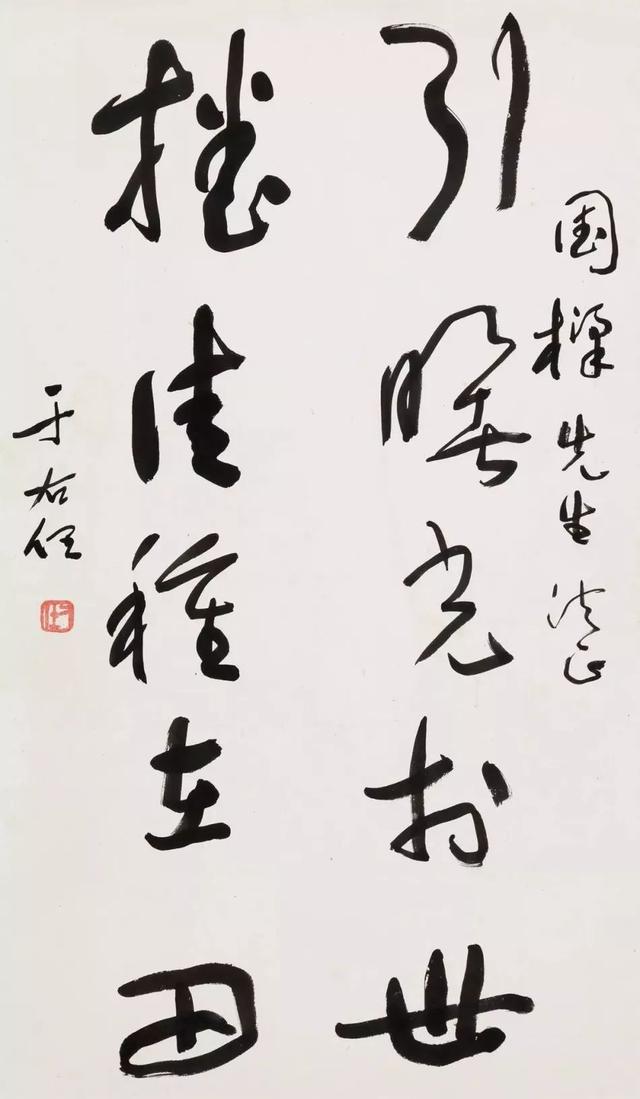 國先生法正
引曙光於世
播佳種在田
于右任